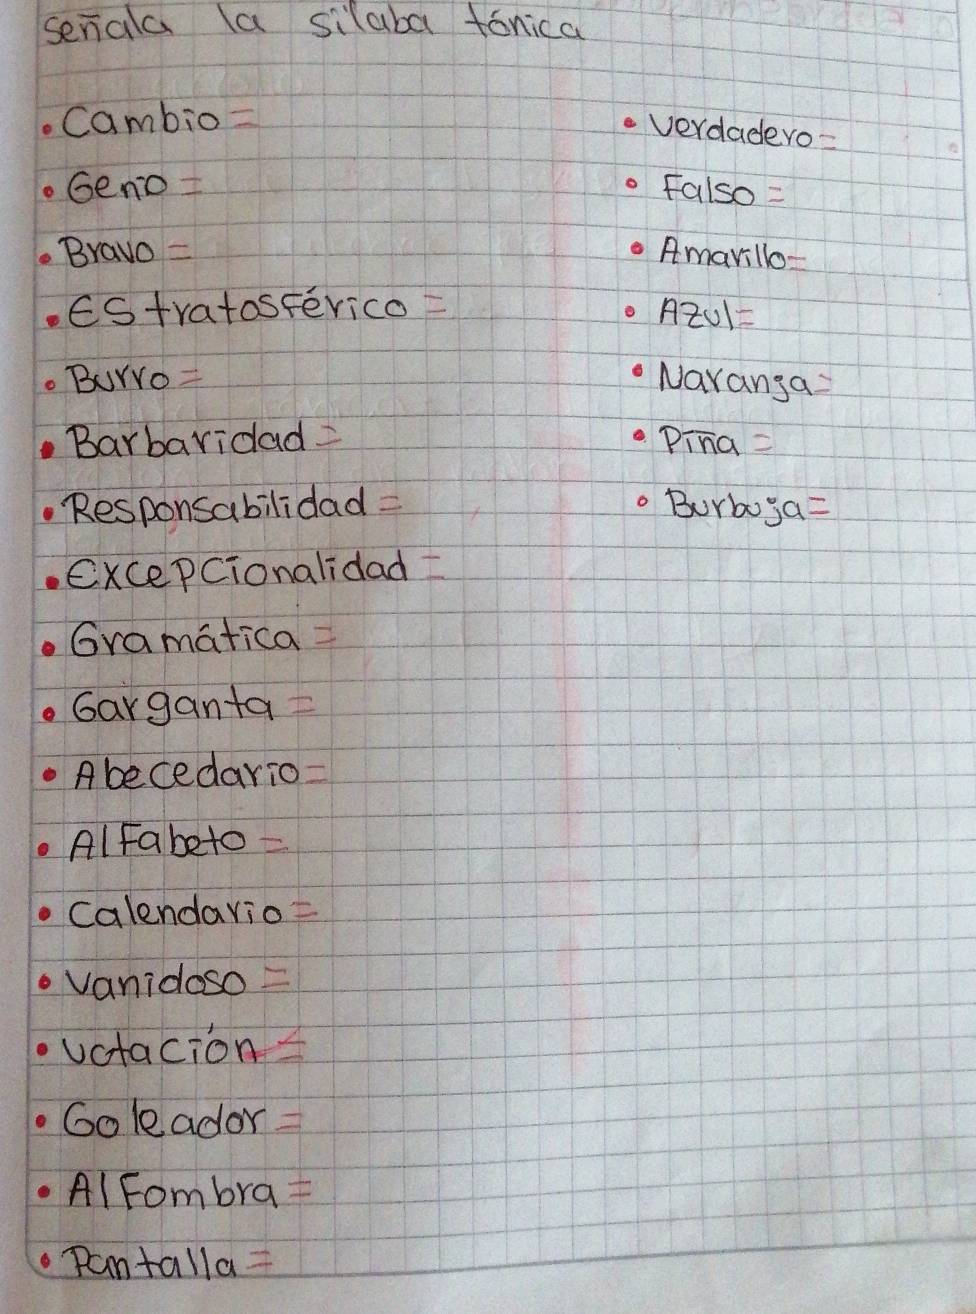 señala la sílaba tónica
• Cambio =
• Genio =
• Bravo =
• EStratosférico =
• Burro =
• Barbaridad =
• Responsabilidad =
• Excepcionalidad =
• Gramática =
• Garganta =
• Abecedario =
• Alfabeto =
• Calendario =
• Vanidoso =
• Votación =
• Goleador =
• Alfombra =
• Pantalla =
• Verdadero =
• Falso =
• Amarillo =
• Azul =
• Naranja =
• Piña =
• Burbuja =